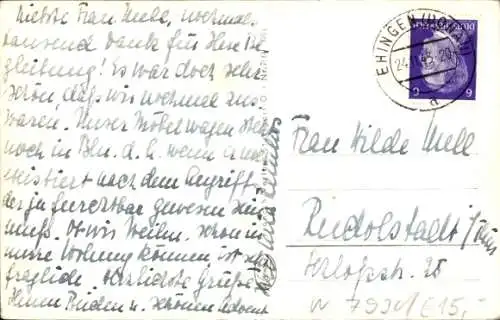 Liebste Frau Mell, nochmals
tausend Dank für Ihre Be-
gleitung! Es war doch sehr
schön, daß wir nochmal zus.
waren. Unser Möbelwagen steht
noch in Bln. d. h. wenn er noch
existiert nach dem Angriff,
der ja furchtbar gewesen sein
muß. Ob wir Weihn. schon in
unsre Wohnung können ist
fraglich. Herzlichste Grüße
Ihnen Beiden u. schönen Advent
EHINGEN (DONAU)
a
Frau Hilde Mell
Rudolstadt / Thür
Schloßstr. 25